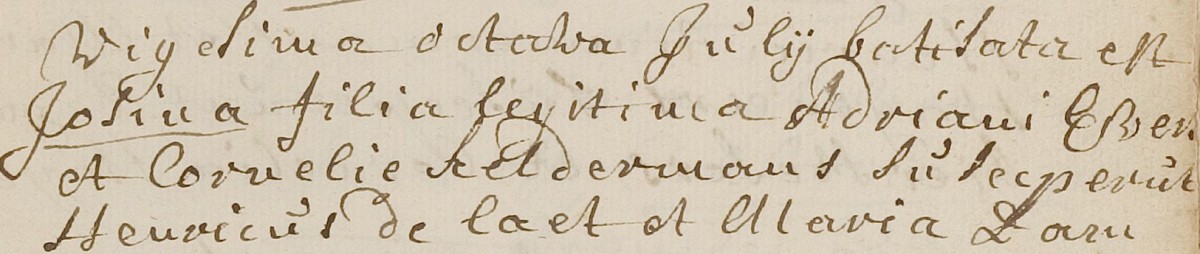 Vigesima octava July batisata est
Josina filia legitima Adriani Esven
et Cornelie Keldermans susceperut
Henricus de laet et Maria Dam